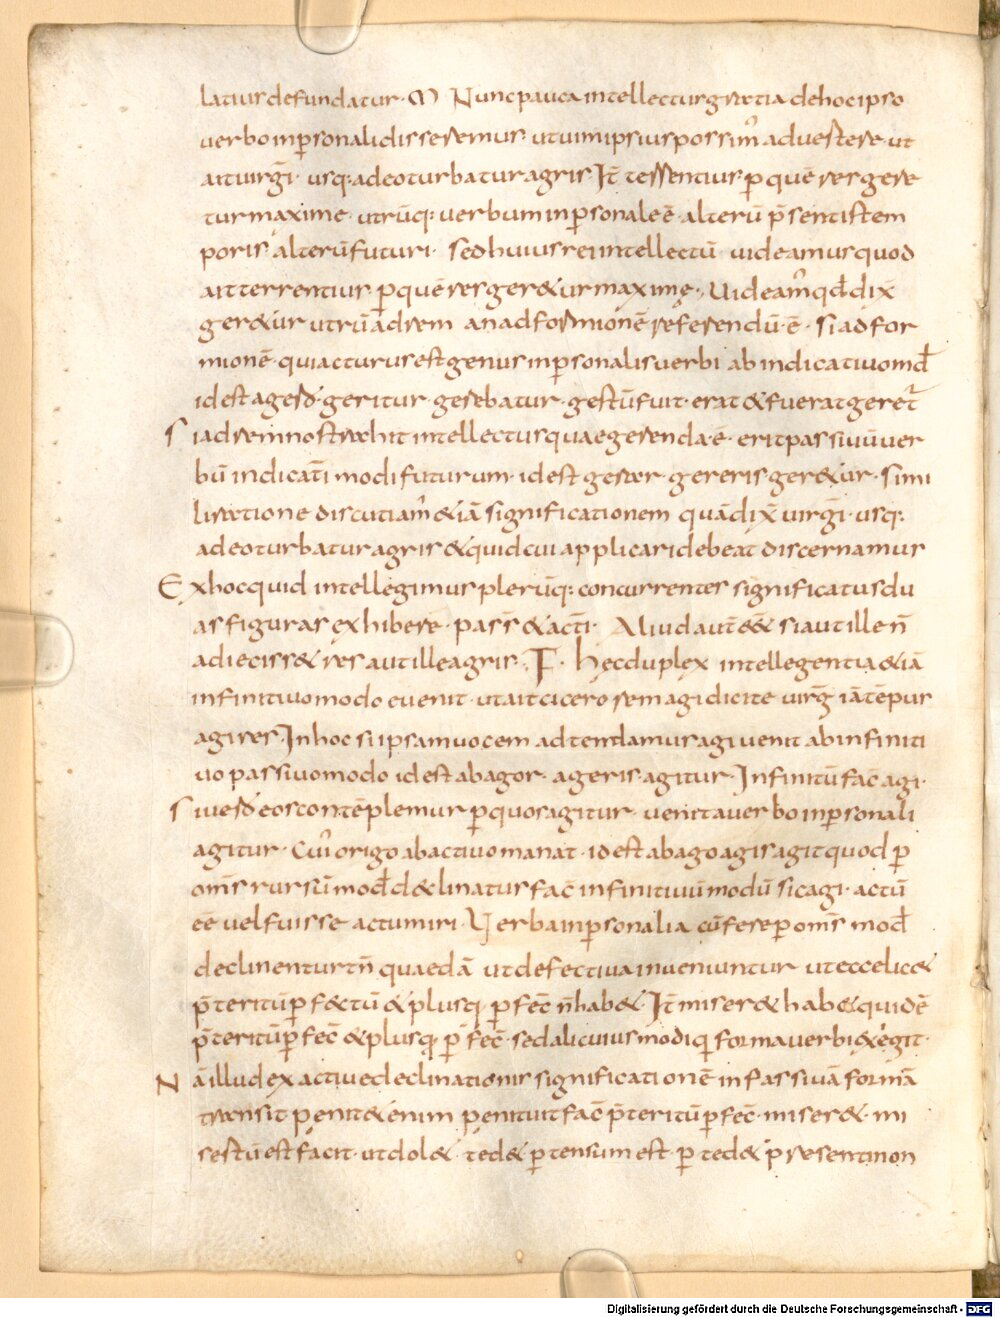 latiur defundatur. M Nunc pauca intellectus gratia de hoc ipso
verbo inp̄sonali disseremus. ut uim ipsius possim᾽ aduertere ut
ait uirgī. usq; adeo turbatur agris It̄ terrentiur p̄ quē res gere
tur maxime. utrūq; uerbum inp̄sonale ē. alterū p̄sentis tem
poris alterū futuri. sed huius rei intellectū uideamus quod
ait terrentiur p̄ quē res ger&ur maxime. Uideam᾽ qđ dix̄
ger&ur utrū ad rem an ad formionē referendū ē. si ad for
mionē. quia acturus est genus inp̄sonalis uerbi ab indicatiuo mođ
id est agerđ. geritur. gerebatur. gestū fuit. erat & fuerat geret̄
Si ad rem nostra hit intellectus quae gerenda ē. erit passiuū uer
bū indicati modi futurum. id est gerar. gereris ger&ur. Simi
li ratione discutiam᾽ & iā significationem quā dix̄ uirgī. usq;
adeo turbatur agris & quid cui applicari debeat discernamus
Ex hoc quid intellegimus plerūq; concurrentes significatus du
as figuras exhibere. pass̄ & acti. Aliud aut̄ ēē si aut ille n̄
adieciss& res aut ille agris. T. hęc duplex intellegentia & iā
infinitiuo modo euenit. ut ait cicero rem agi dicite uirḡ iā tēpus
agi res. In hoc si ipsam uocem adtendamur agi uenit ab infiniti
uo passiuo modo id est ab agor. ageris. agitur. Infinitū fac̄ agi.
Siue ađ eos contēplemur p̄ quos agitur. uenit a uerbo inp̄sonali
agitur. Cui᾽ origo ab actiuo manat. id est ab ago agis agit quod p̄
om̄s rursū mođ d&linatur fac̄ infinitiuū modū sic agi. actū
ēē uel fuisse actum iri. Uerba inp̄sonalia cū fere p̄ om̄s mođ
declinentur tn̄ quaedā ut defectiua inueniuntur ut ecce lic&
p̄teritū p̄f&tū & plusq̄ p̄fec̄ n̄ hab& It̄ miser& hab& quidē
p̄teritū p̄fec̄ & plusq̄ p̄fec̄. sed alicuius modi q̄ forma uerbi exegit.
Nā illud ex actiue declinationis significationē in passiuā formā
transit penit& enim penituit fac̄ p̄teritū p̄fec̄. miser&. mi
sertū est facit. ut dol&. tęd& p̄tensum est. p̄ted& praesenti non
Digitalisierung gefördert durch die Deutsche Forschungsgemeinschaft - DFG